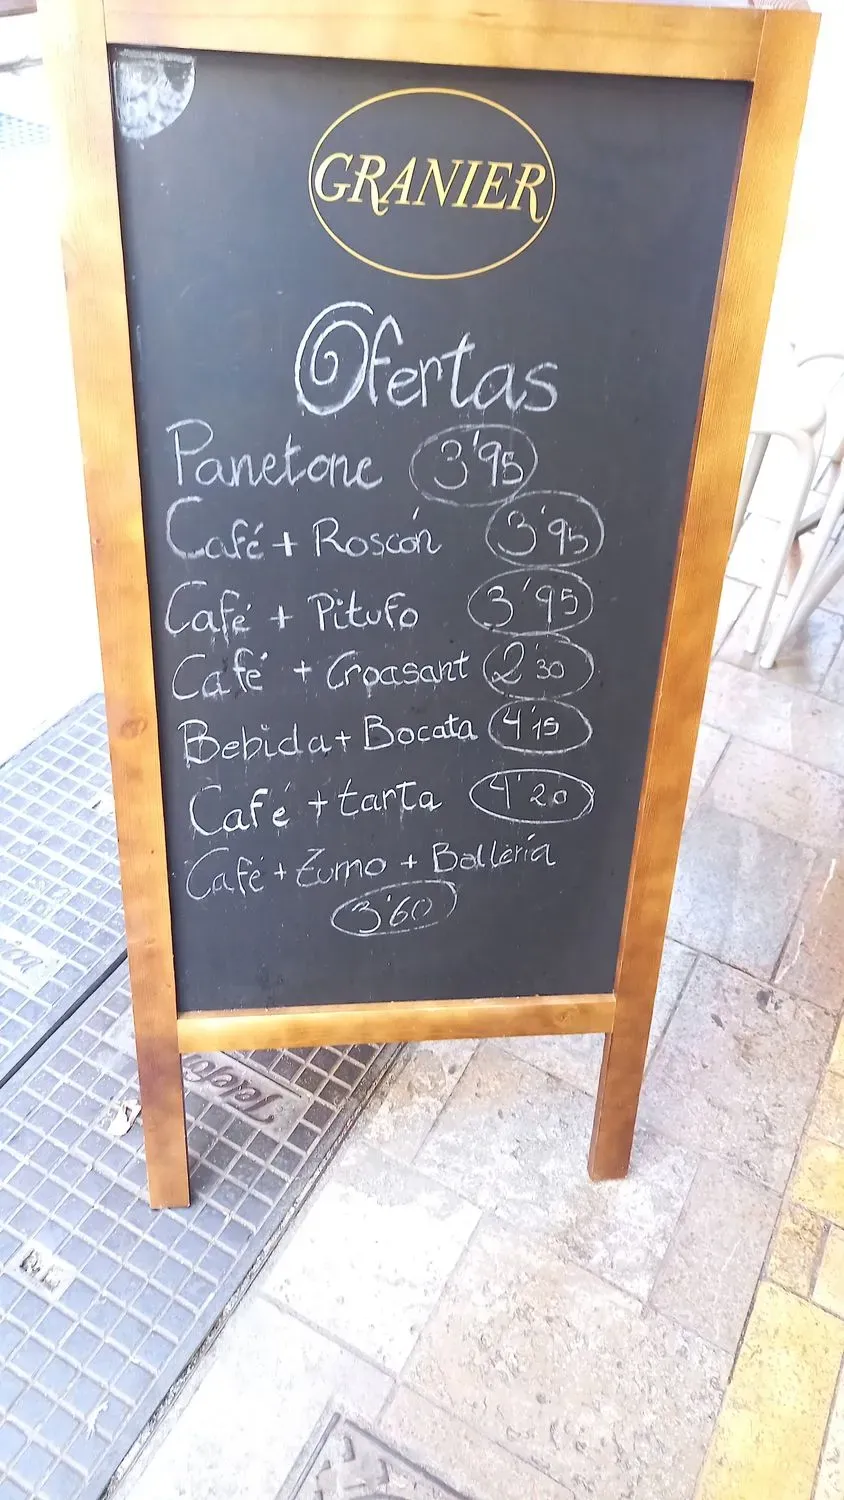 GRANIER
Ofertas
Panetone 3'95
Café + Roscón 3'95
Café + Pitufo 3'95
Café + Croasant 2'30
Bebida + Bocata 4'15
Café + tarta 4'20
Café + Zumo + Bolleria
3'60
Telefó